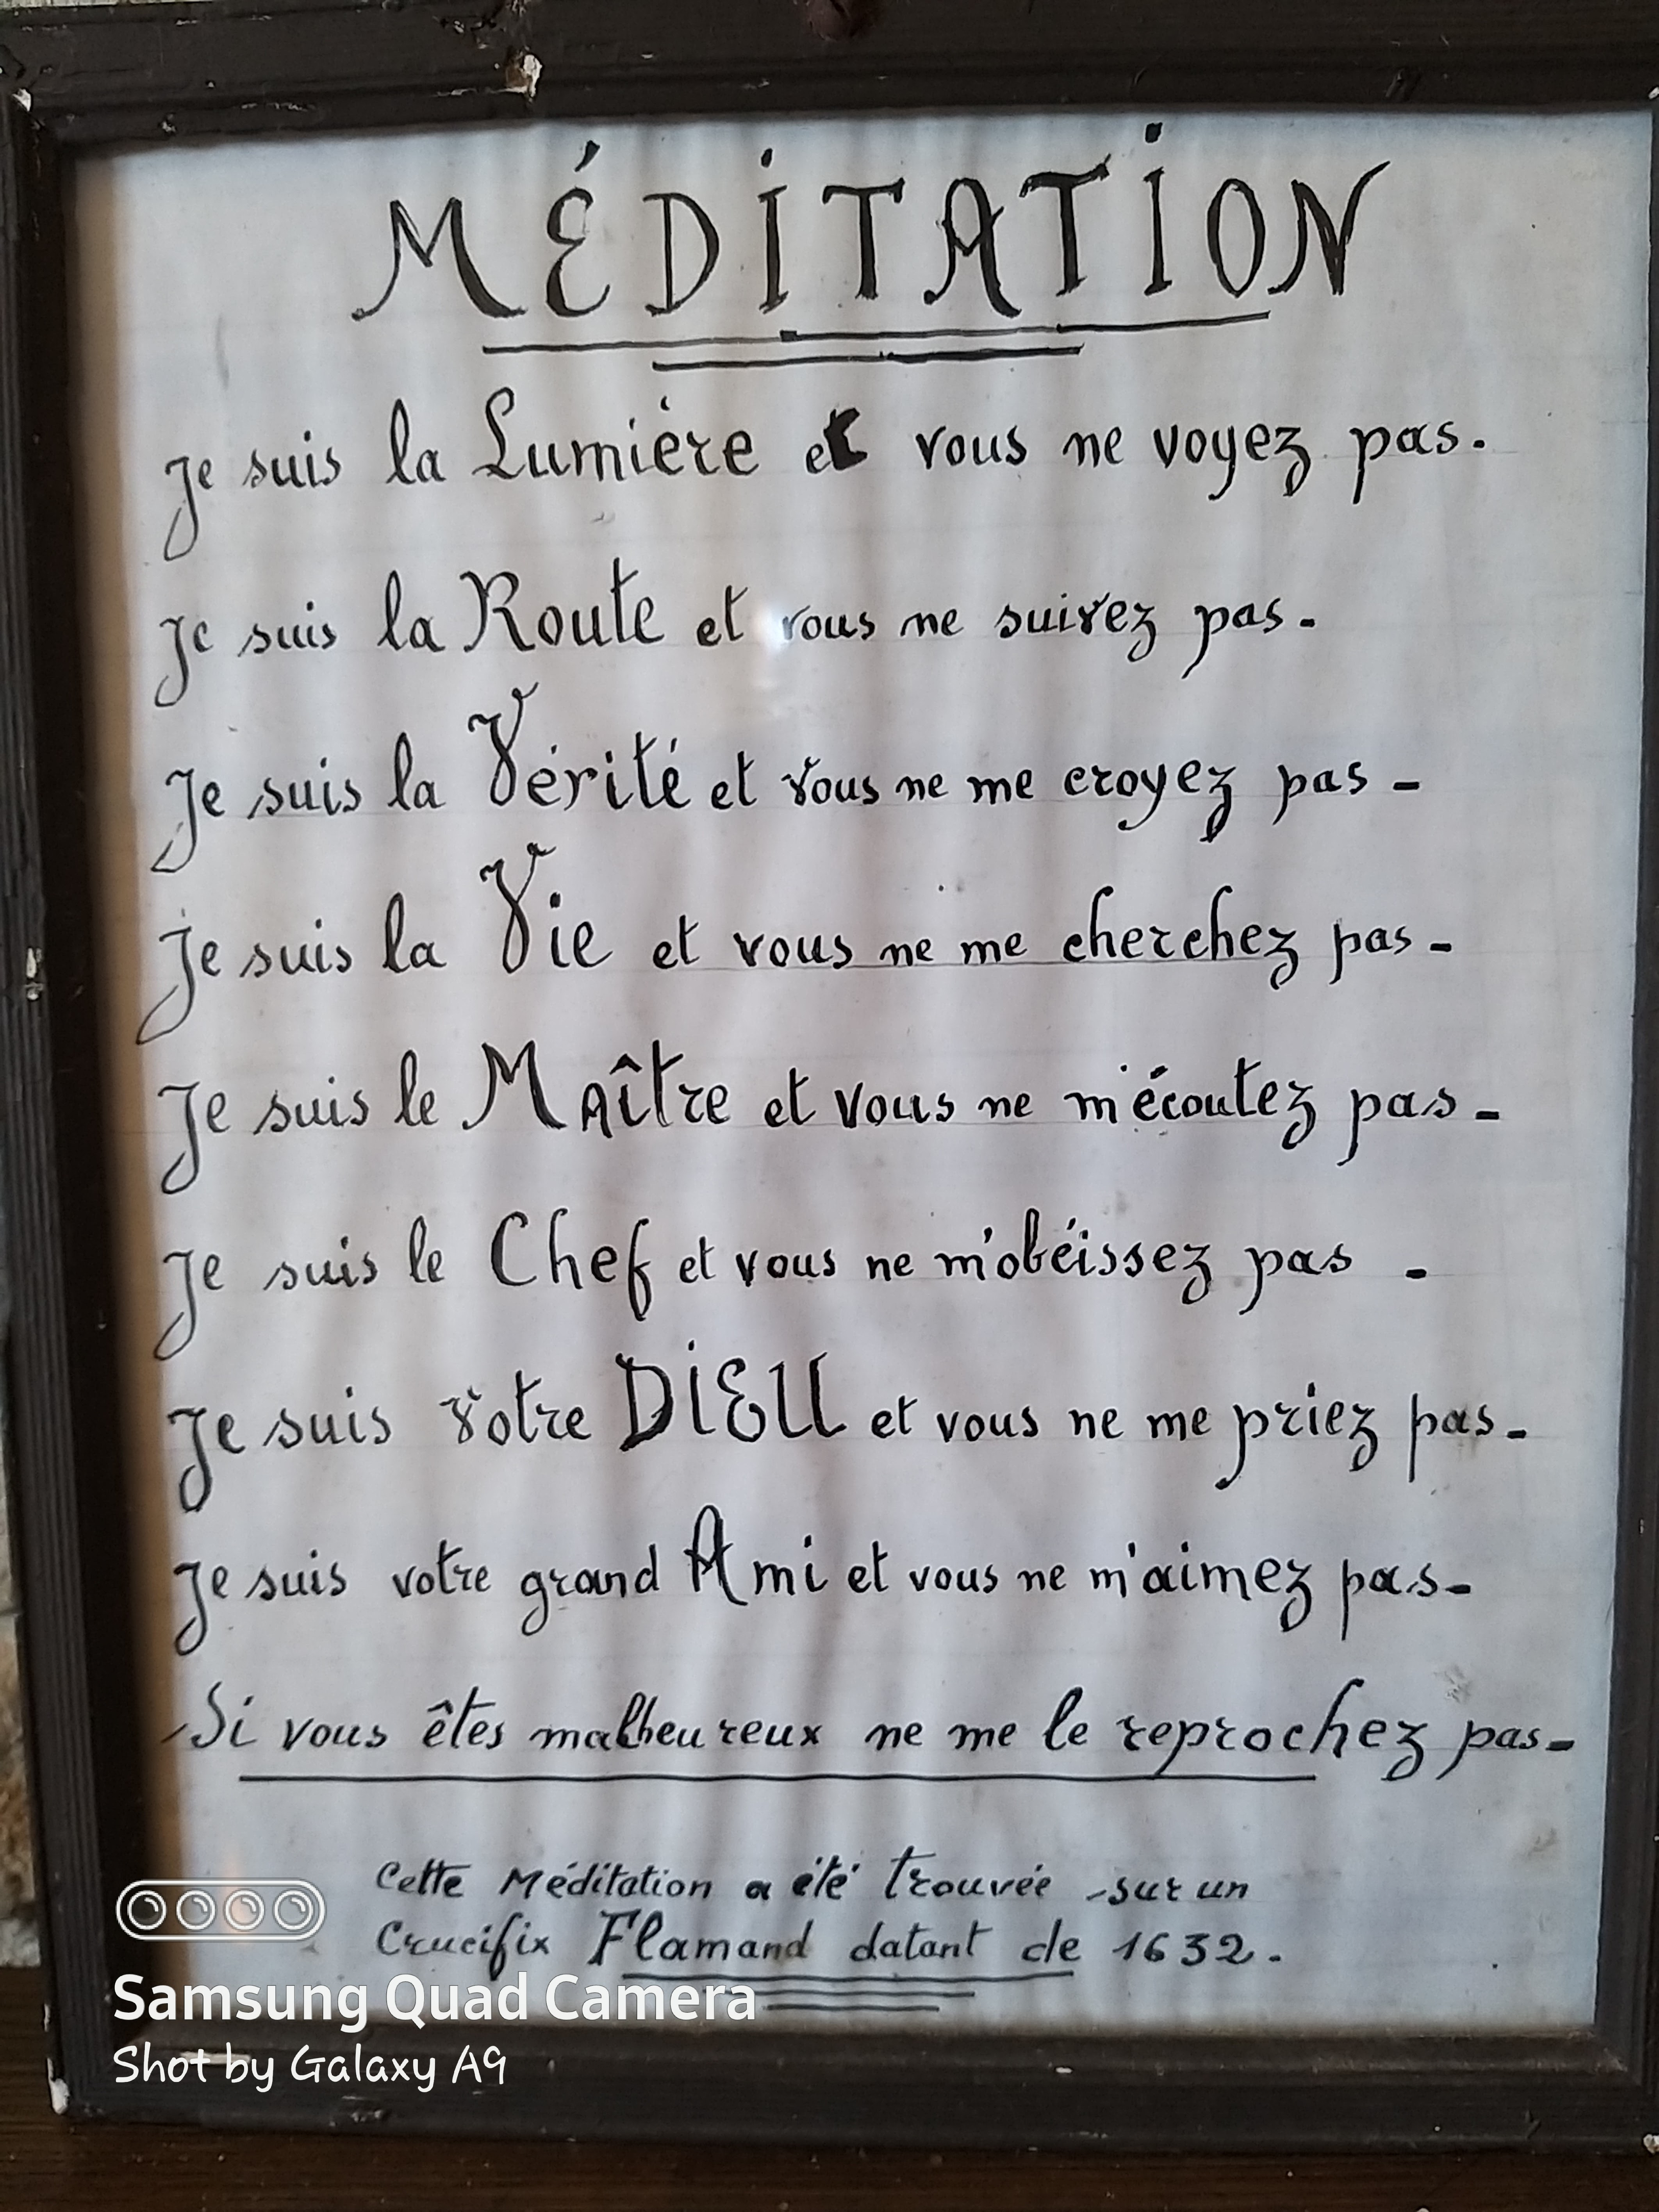 MÉDITATION
Je suis la Lumière et vous ne voyez pas.
Je suis la Route et vous ne suivez pas.
Je suis la Vérité et vous ne me croyez pas -
Je suis la Vie et vous ne me cherchez pas -
Je suis le Maître et vous ne m'écoutez pas -
Je suis le Chef et vous ne m'obéissez pas -
Je suis votre DIEU et vous ne me priez pas -
Je suis votre grand Ami et vous ne m'aimez pas -
Si vous êtes malheureux ne me le reprochez pas -
Cette Méditation a été trouvée sur un
Crucifix Flamand datant de 1632.
Samsung Quad Camera
Shot by Galaxy A9